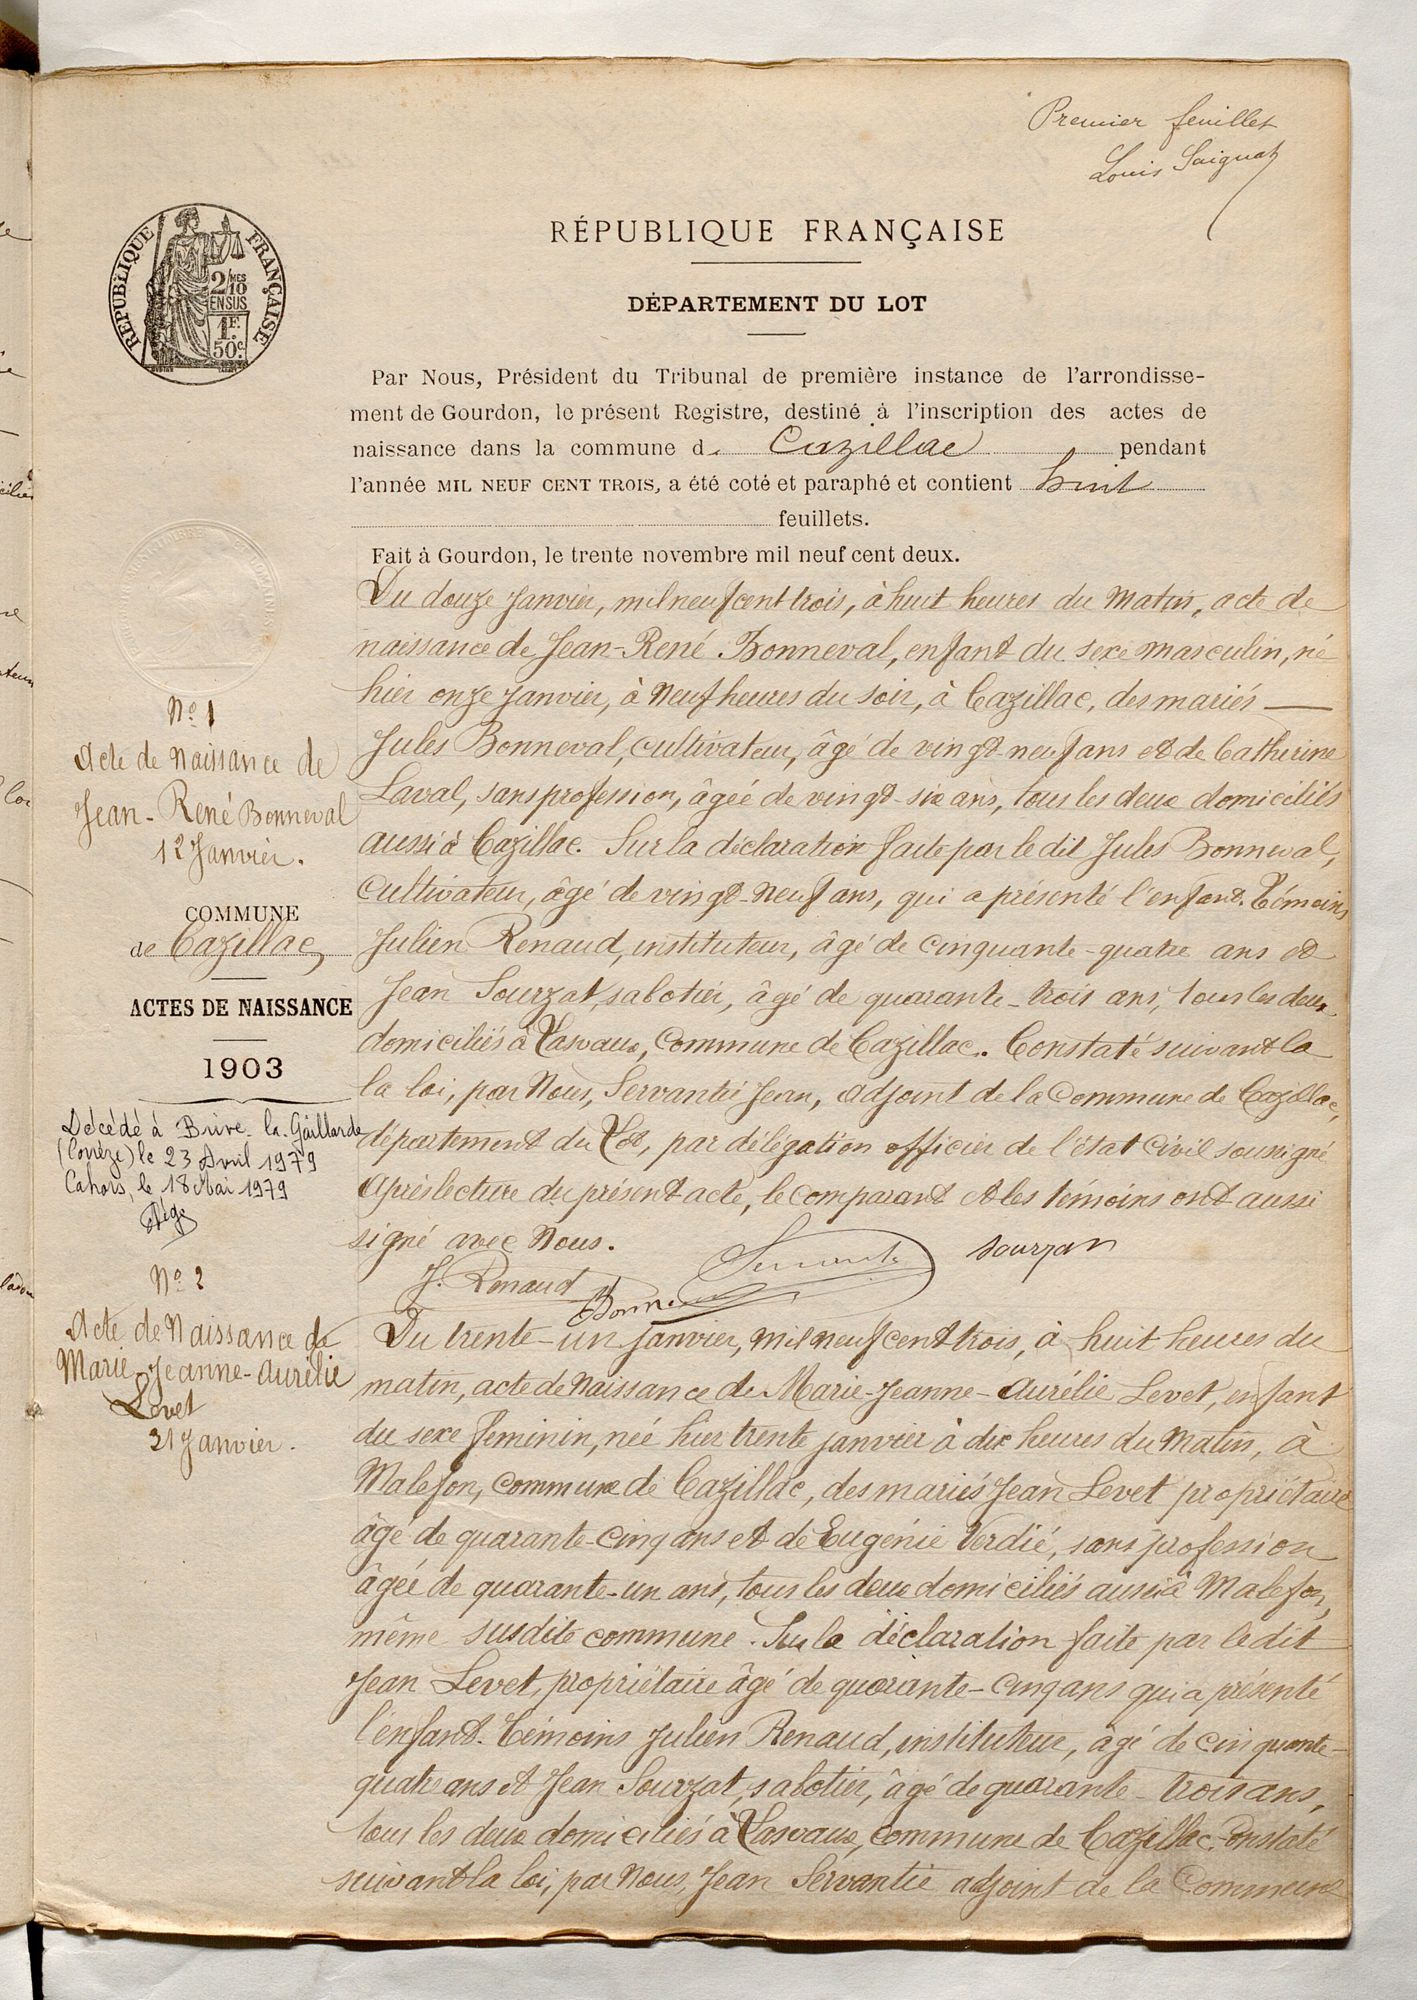 Premier feuillet
Louis Saignat
RÉPUBLIQUE FRANÇAISE
2/10 MES
EN SUS
1F.
50c.
RÉPUBLIQUE FRANÇAISE
DÉPARTEMENT DU LOT
Par Nous, Président du Tribunal de première instance de l'arrondisse-
ment de Gourdon, le présent Registre, destiné à l'inscription des actes de
naissance dans la commune d. Cazillac pendant
l'année MIL NEUF CENT TROIS, a été coté et paraphé et contient huit
feuillets.
Fait à Gourdon, le trente novembre mil neuf cent deux.
N° 1
Acte de Naissance de
Jean-René Bonneval
12 Janvier.
COMMUNE
de Cazillac
ACTES DE NAISSANCE
1903
Décédé à Brive-la-Gaillarde
(Corrèze) le 23 Avril 1979
Cahors, le 18 Mai 1979
Du douze Janvier, mil neuf cent trois, à huit heures du Matin, acte de
naissance de Jean-René Bonneval, enfant du sexe masculin, né
hier onze Janvier, à Neuf heures du soir, à Cazillac, des mariés
Jules Bonneval, cultivateur, âgé de vingt-neuf ans et de Catherine
Laval, sans profession, âgée de vingt-six ans, tous les deux domiciliés
aussi à Cazillac. Sur la déclaration faite par le dit Jules Bonneval,
cultivateur, âgé de vingt-neuf ans, qui a présenté l'enfant. Témoins
Julien Renaud, instituteur, âgé de cinquante-quatre ans et
Jean Sourzat, sabotier, âgé de quarante-trois ans, tous les deux
domiciliés à Lasvaux, Commune de Cazillac. Constaté suivant la
la loi, par Nous, Servantie Jean, Adjoint de la Commune de Cazillac,
département du Lot, par délégation officier de l'état civil soussigné
Après lecture du présent acte, le comparant et les témoins ont aussi
signé avec Nous.
Servantie
Sourzat
J. Renaud
Bonneval
N° 2
Acte de Naissance de
Marie-Jeanne-Aurélie
Levet
31 Janvier.
Du trente-un janvier, mil neuf cent trois, à huit heures du
matin, acte de Naissance de Marie-Jeanne-Aurélie Levet, enfant
du sexe feminin, née hier trente janvier à dix heures du Matin, à
Malefon, commune de Cazillac, des mariés Jean Levet propriétaire
âgé de quarante-cinq ans et de Eugénie Verdié, sans profession
âgée de quarante-un ans, tous les deux domiciliés aussi à Malefon,
même susdite commune. Sur la déclaration faite par le dit
Jean Levet, propriétaire âgé de quarante-cinq ans qui a présenté
l'enfant. Témoins Julien Renaud, instituteur, âgé de cinquante-
quatre ans et Jean Sourzat, sabotier, âgé de quarante-trois ans,
tous les deux domiciliés à Lasvaux, commune de Cazillac. Constaté
suivant la loi, par Nous, Jean Servantie adjoint de la Commune